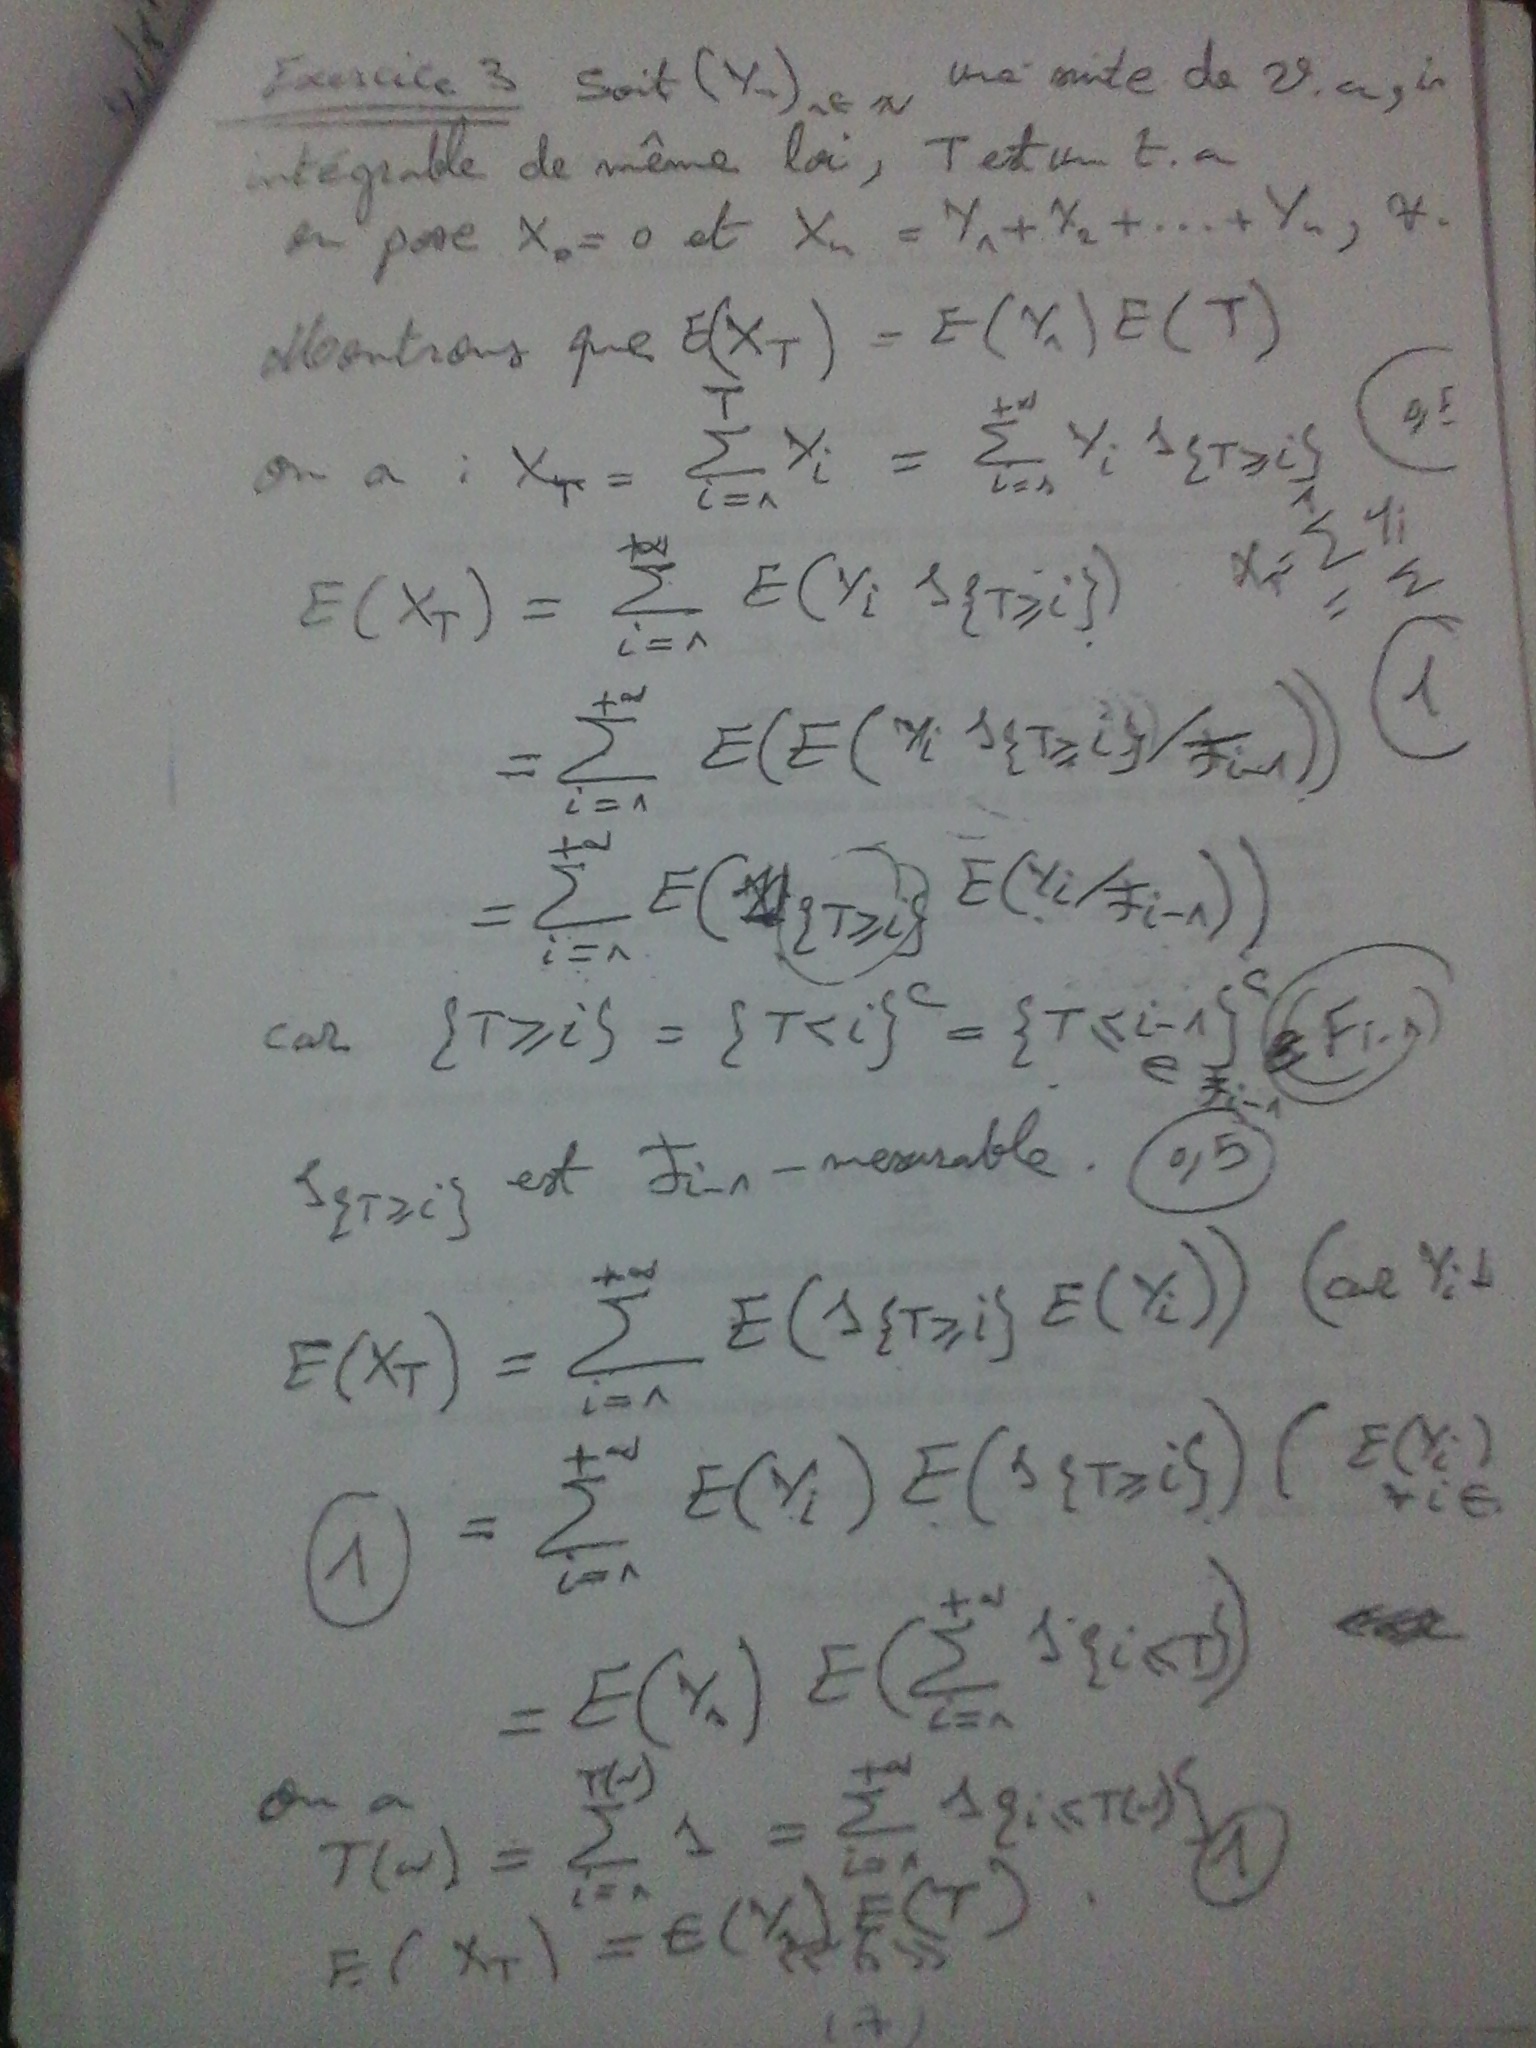 Exercice 3 Soit (Y_n)_{n∈N} une suite de v.a, in
intégrable de même loi, T est un t.a
on pose X_0 = 0 et X_n = Y_1 + Y_2 + ... + Y_n, ∀.
Montrons que E(X_T) = E(Y_1) E(T)
on a : X_T = ∑_{i=1}^{T} Y_i = ∑_{i=1}^{+∞} Y_i 1_{T≥i} 0,5
E(X_T) = ∑_{i=1}^{+∞} E(Y_i 1_{T≥i})
X_T = ∑ Y_i
= ∑
= ∑_{i=1}^{+∞} E(E(Y_i 1_{T≥i}/F_{i-1})) 1
= ∑_{i=1}^{+∞} E(1_{T≥i} E(Y_i/F_{i-1}))
car {T≥i} = {T<i}^c = {T≤i-1}^c (F_{i-1})
∈ F_{i-1}
1_{T≥i} est F_{i-1}-mesurable. 0,5
E(X_T) = ∑_{i=1}^{+∞} E(1_{T≥i} E(Y_i)) (car Y_i
1 = ∑_{i=1}^{+∞} E(Y_i) E(1_{T≥i}) (E(Y_i)
∀i ∈
= E(Y_1) E(∑_{i=1}^{+∞} 1_{i≤T})
on a
T(ω) = ∑_{i=1}^{T(ω)} 1 = ∑_{i=1}^{+∞} 1_{i≤T(ω)} 1
E(X_T) = E(Y_1) E(T).
(7)